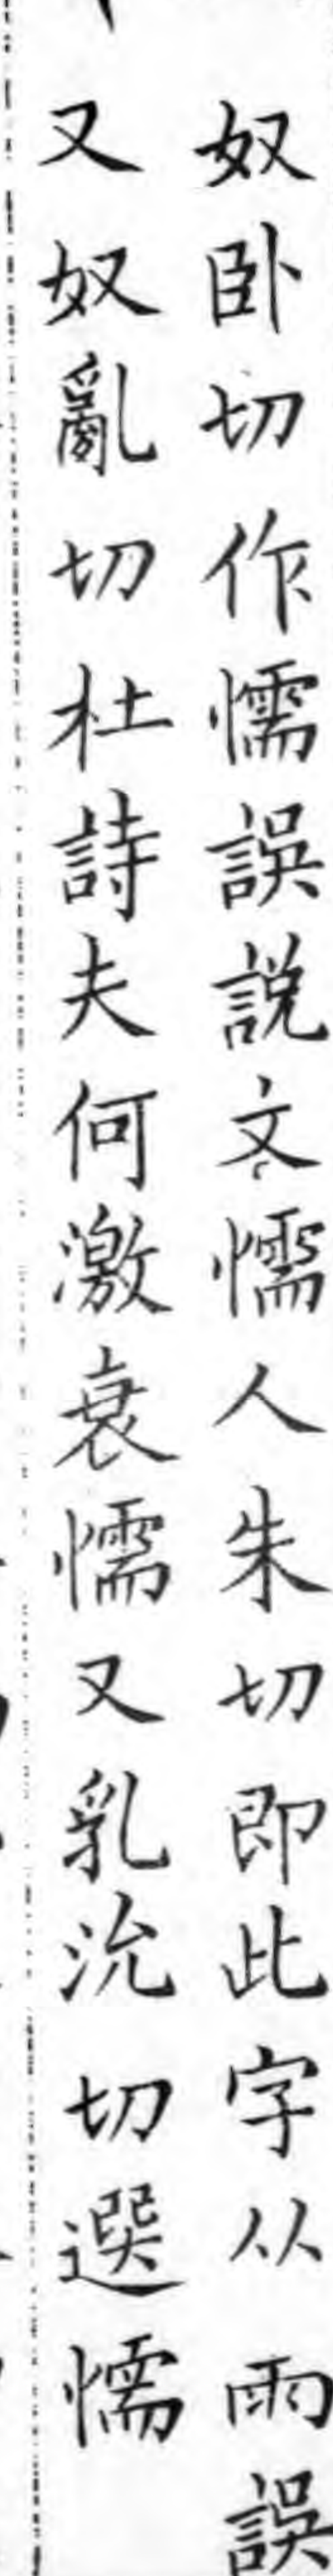 奴卧切作懦誤説文懦人朱切即此字从雨誤
又奴亂切杜詩夫何激衰懦又乳沇切選懦